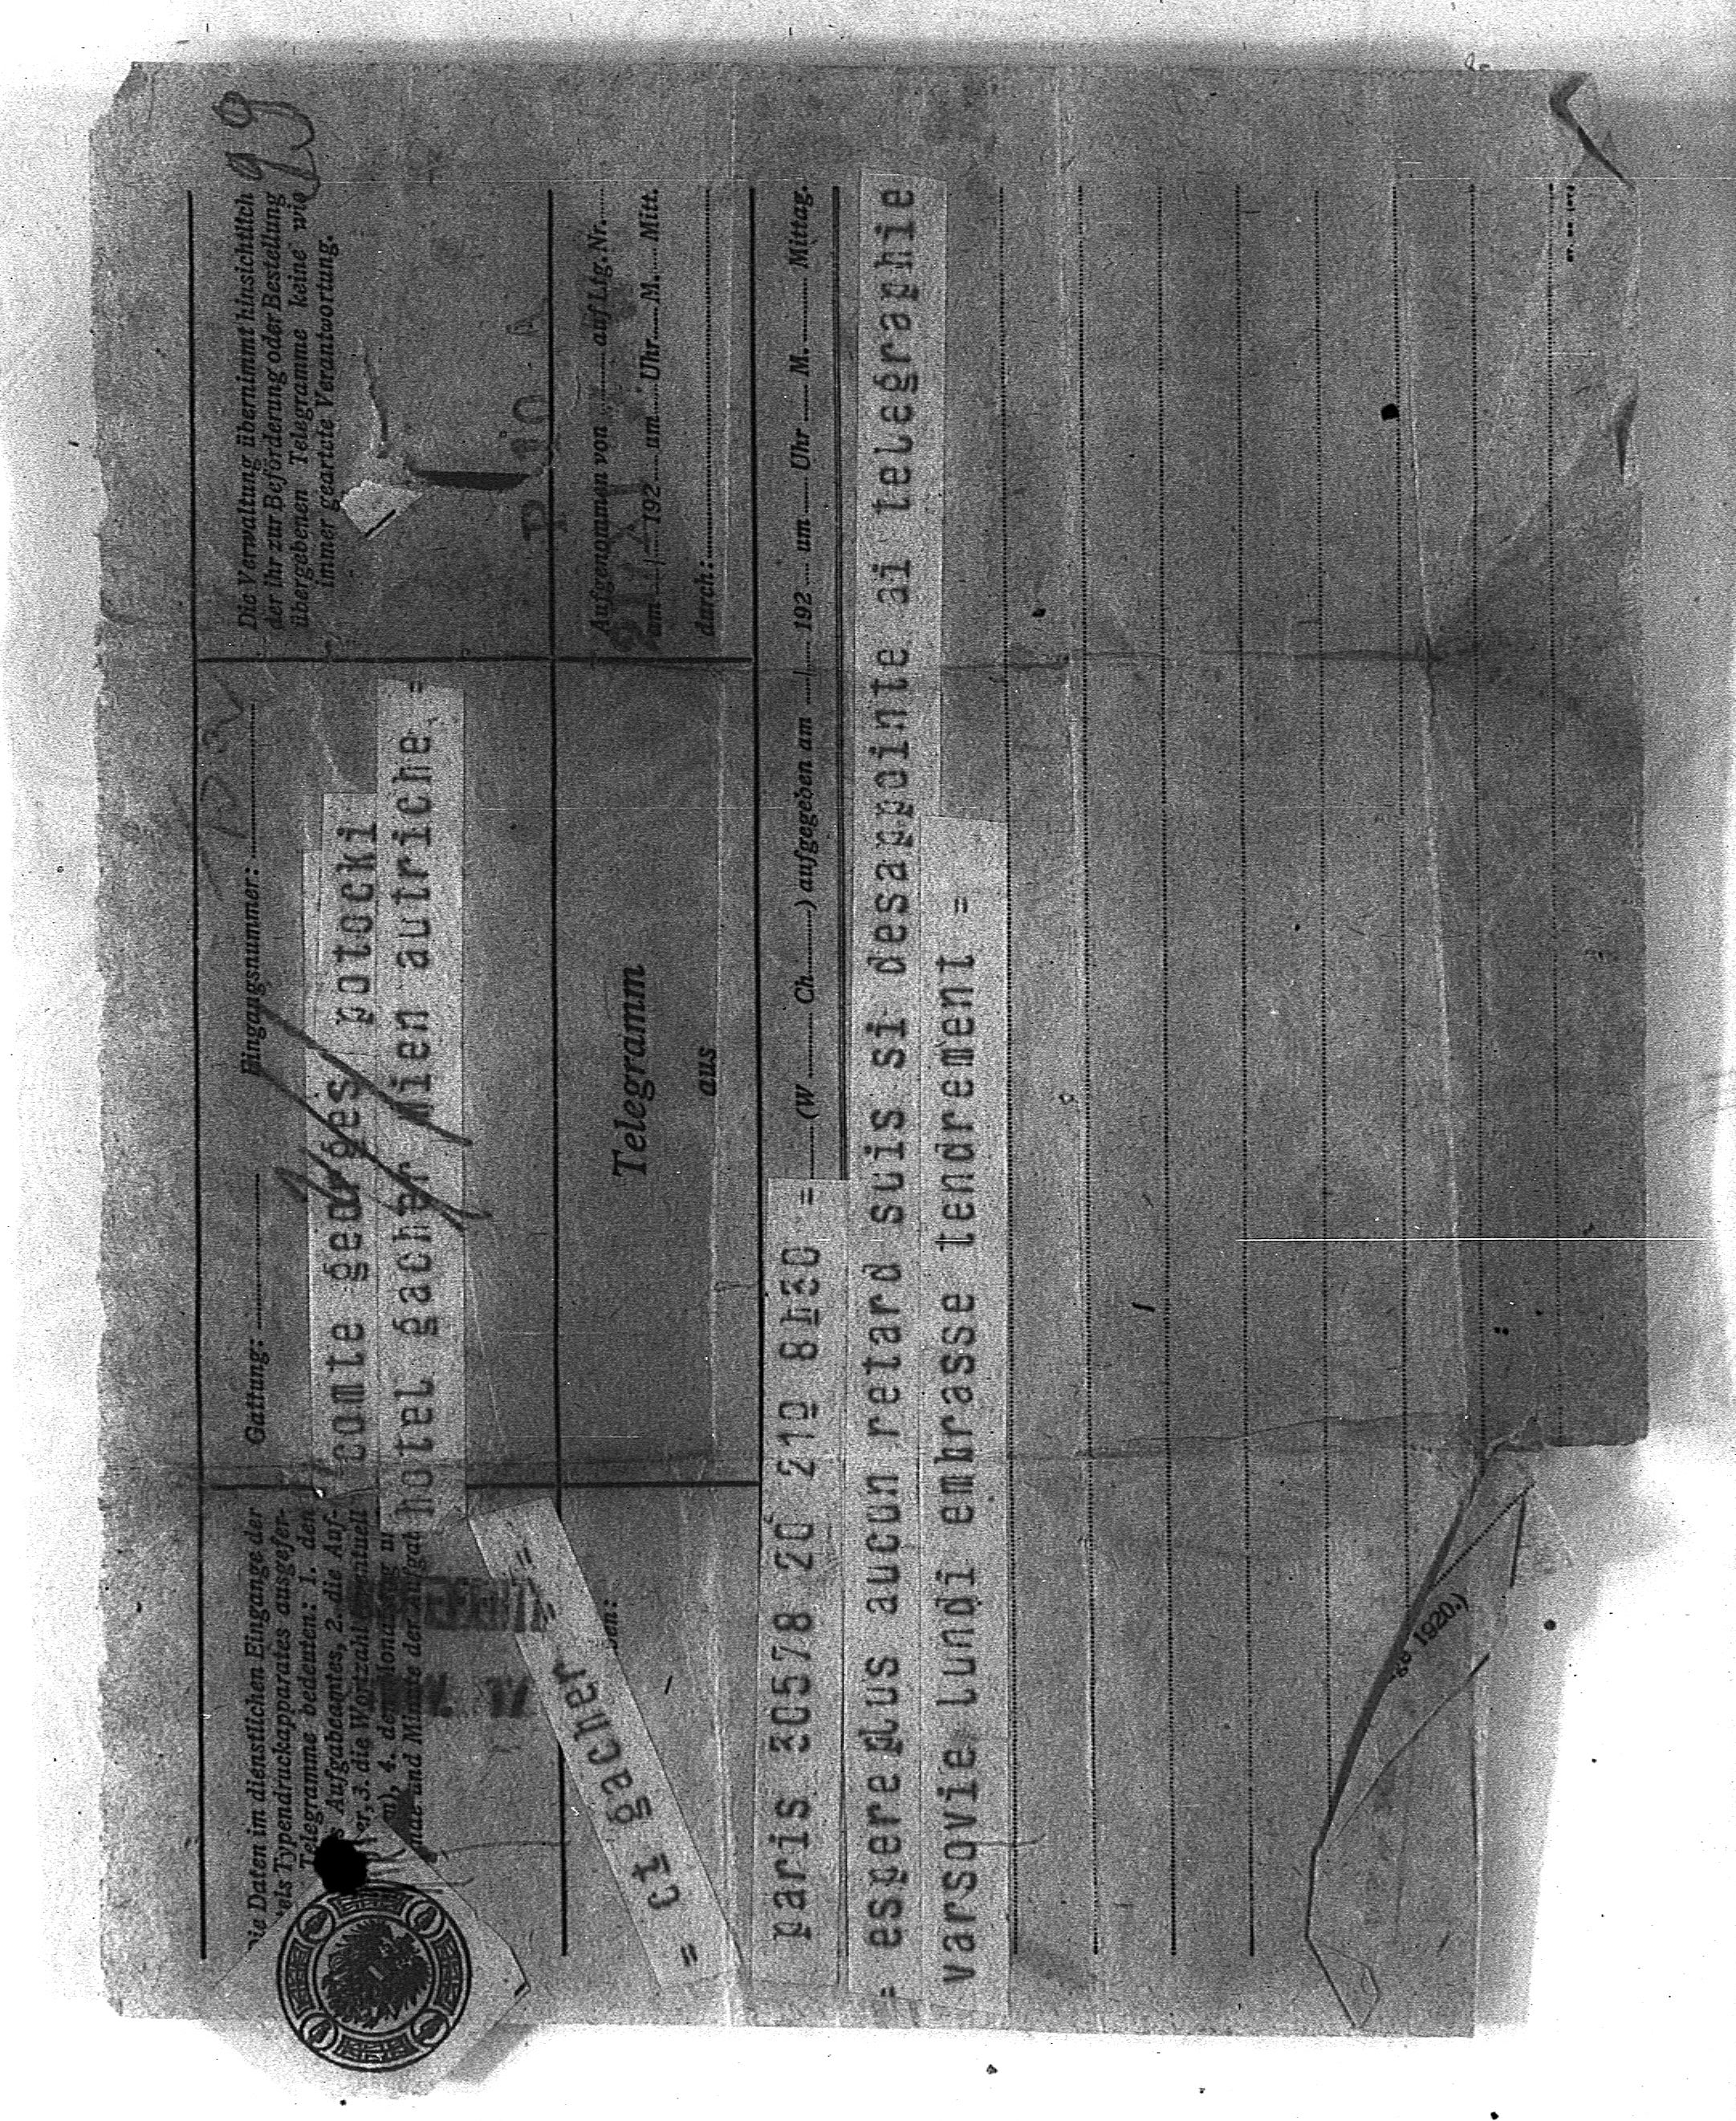 Die Daten im dienstlichen Eingange der
Typendruckapparates ausgefer-
Telegramme bedeuten: 1. den
Aufgabeamtes, 2. die Auf-
3. die Wortzahl eventuell
4. den Monatstag
und Minute der Aufgabe
Gattung:
Eingangsnummer:
comte georges potocki
hotel sacher wien autriche =
Die Verwaltung übernimmt hinsichtlich
der ihr zur Beförderung oder Bestellung
übergebenen Telegramme keine wie
immer geartete Verantwortung.
= ct sacher =
Telegramm
aus
Aufgenommen von auf Ltg. Nr.
am 192 um Uhr M. Mitt.
durch:
paris 30578 20 219 8h30 =
(W Ch ) aufgegeben am 192 um Uhr M. Mittag.
= espereplus aucun retard suis si desappointe ai telegraphie
varsovie lundi embrasse tendrement =
1920.)